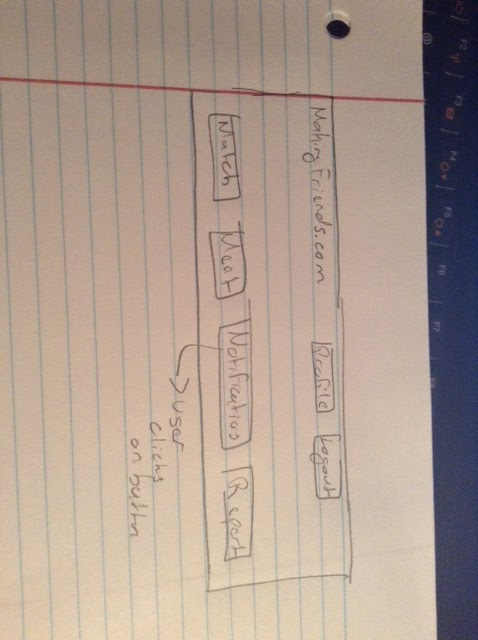 MakingFriends.com Profile Logout
Match Meet Notifications Report
user
clicks
on button
F2
F3
F4
F5
F6
F7